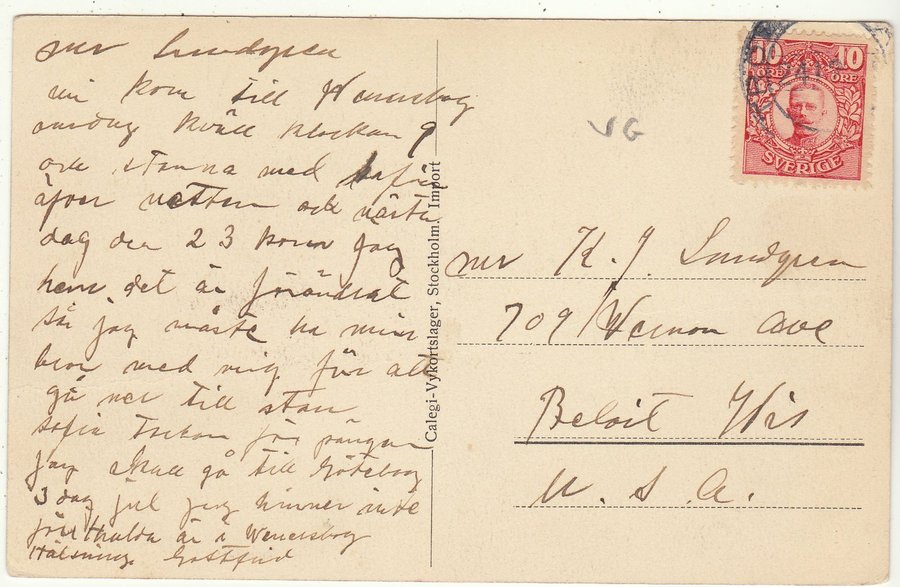 mr Lundgren
vi kom till Wenersbog
onsdag kväll klockan 9
och stanna med Sofi
äfver natten och nästa
dag den 23 kom jag
hem det är förändrat
så jag måste ha min
bror med mig för att
gå ner till stan
Sofia för pängar
jag skall gå till Göteborg
3 dag jul jag hinner inte
för Hulda är i Wenersbog
Hälsning Gottfrid
Calegi-Vykortslager, Stockholm. Import
VG
10 10
ÖRE ÖRE
SVERIGE
mr K. J. Lundgren
709 Vernon Ave
Beloit Wis
U. S. A.